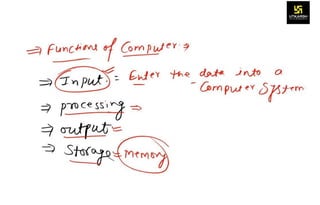 UTKARSH
⇒ Functions of Computer ⇒
⇒ Input = Enter the data into a
Computer System
⇒ processing ⇒
⇒ output =
⇒ Storage = memory